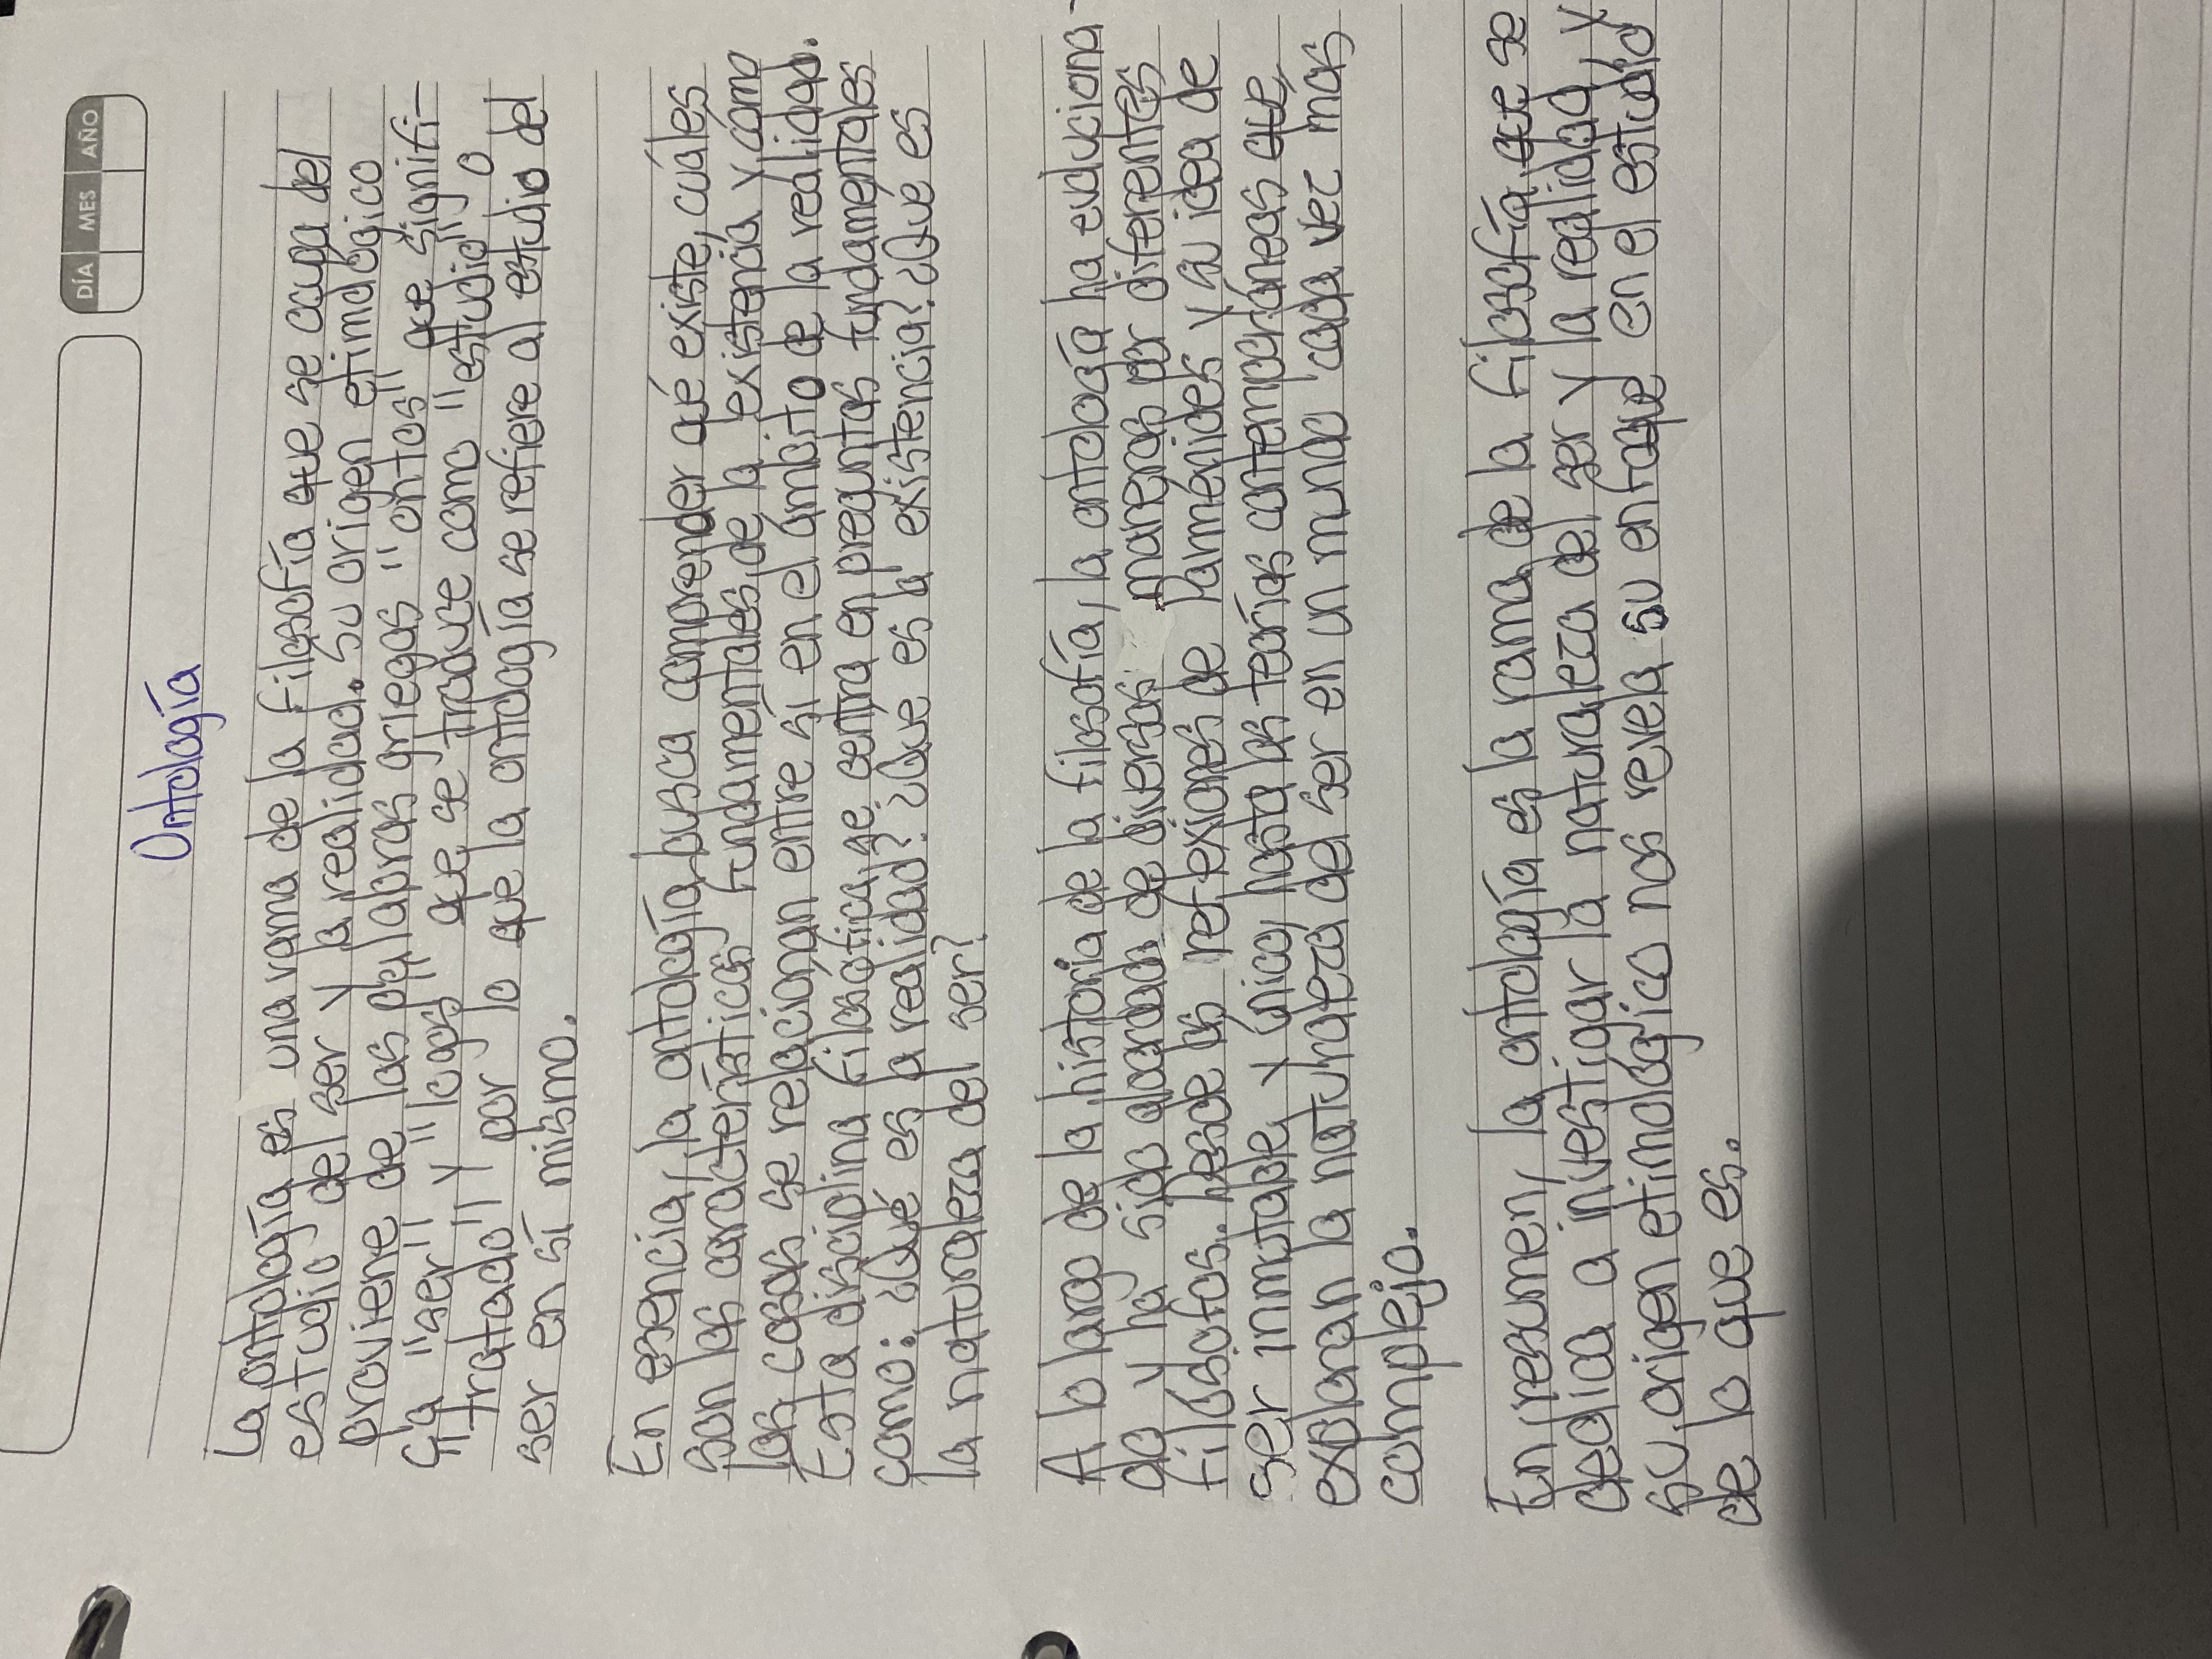 DÍA MES AÑO
Ontología
La ontología es una rama de la filosofía que se ocupa del
estudio del ser y la realidad. Su origen etimológico
proviene de las palabras griegas "ontos" que signifi-
ca "ser" y "logos" que se traduce como "estudio" o
"tratado" y por lo que la ontología se refiere al estudio del
ser en sí mismo.
En esencia, la ontología busca comprender qué existe, cuáles
son las características fundamentales de la existencia y cómo
las cosas se relacionan entre sí en el ámbito de la realidad.
Esta disciplina filosófica se centra en preguntas fundamentales
como: ¿Qué es la realidad? ¿Qué es la existencia? ¿Qué es
la naturaleza del ser?
A lo largo de la historia de la filosofía, la ontología ha evoluciona-
do y ha sido abordada de diversas maneras por diferentes
filósofos. Desde las reflexiones de Parménides y su idea de
ser inmutable y único, hasta las teorías contemporáneas que
exploran la naturaleza del ser en un mundo cada vez más
complejo.
En resumen, la ontología es la rama de la filosofía que se
dedica a investigar la naturaleza del ser y la realidad, y
su origen etimológico nos revela su enfoque en el estudio
de lo que es.